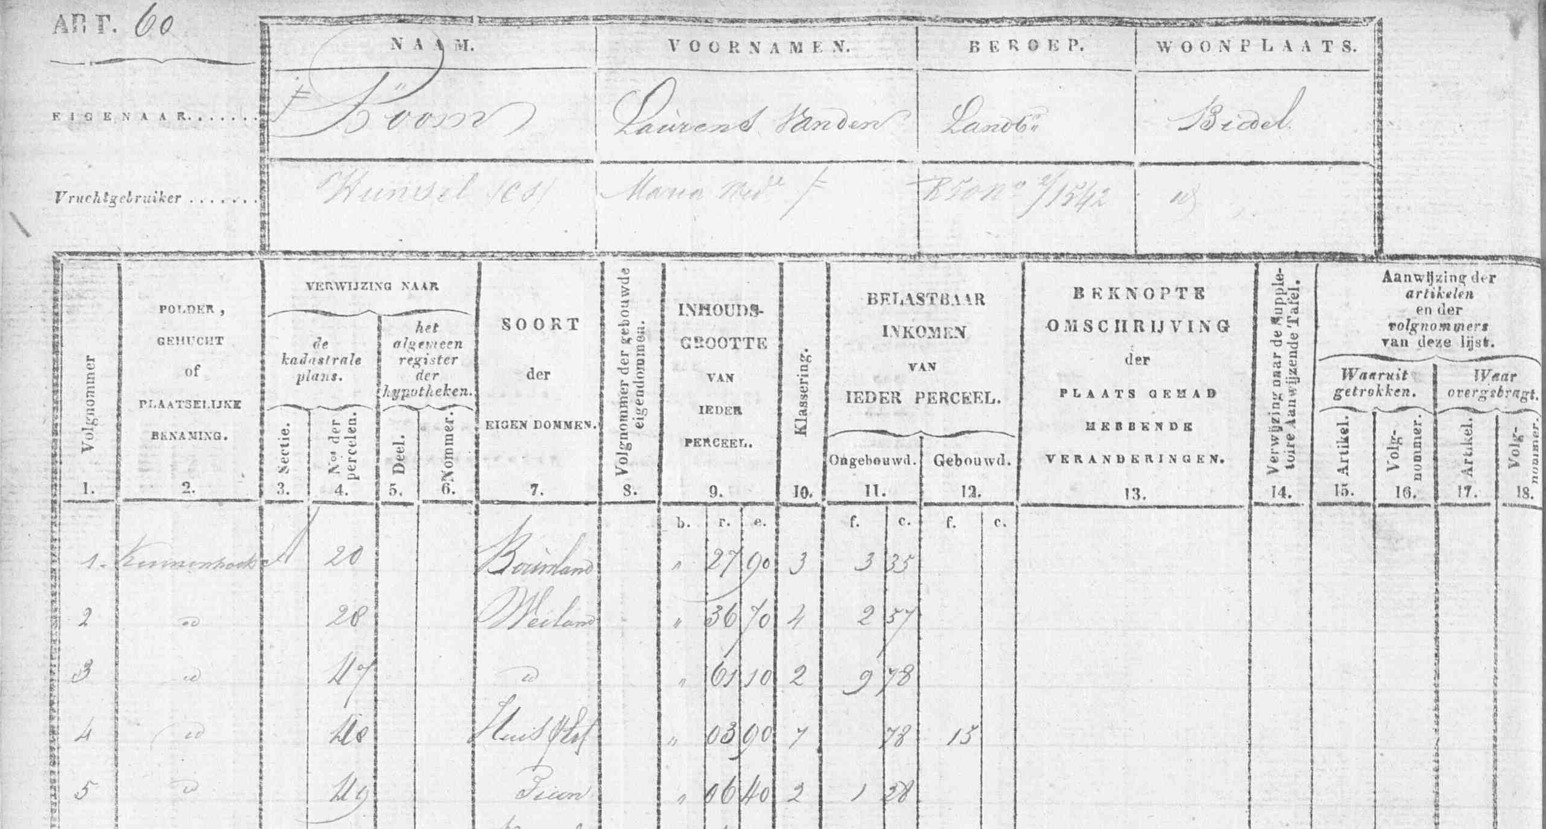 ART. 60
NAAM. VOORNAMEN. BEROEP. WOONPLAATS.
EIGENAAR....... Boom Laurens Vanden Landb.r Bladel
Vruchtgebruiker ....... Maria Wed.e 2/1542 id
Volgnommer
1.
POLDER,
GEHUCHT
of
PLAATSELIJKE
BENAMING.
2.
VERWIJZING NAAR
de
kadastrale
plans.
Sectie.
3.
Nos der
percelen.
4.
het
algemeen
register
der
hypotheken.
Deel.
5.
Nommer.
6.
SOORT
der
EIGENDOMMEN.
7.
Volgnommer der gebouwde
eigendommen.
8.
INHOUDS-
GROOTTE
VAN
IEDER
PERCEEL.
9.
Klassering.
10.
BELASTBAAR
INKOMEN
VAN
IEDER PERCEEL.
Ongebouwd.
11.
Gebouwd.
12.
BEKNOPTE
OMSCHRIJVING
der
PLAATS GEHAD
HEBBENDE
VERANDERINGEN.
13.
Verwijzing naar de Supple-
toire Aanwijzende Tafel.
14.
Aanwijzing der
artikelen
en der
volgnommers
van deze lijst.
Waaruit
getrokken.
Artikel.
15.
Volg-
nommer.
16.
Waar
overgebragt.
Artikel.
17.
Volg-
nommer.
18.
b. r. e. f. c. f. c.
1. A 20 Bouwland " 27 90 3 3 35
2 id 28 Weiland " 36 70 4 2 57
3 id 47 id " 61 10 2 9 78
4 id 48 Huis & Erf " 03 90 1 78 15
5 id 49 Tuin " 06 40 2 1 28